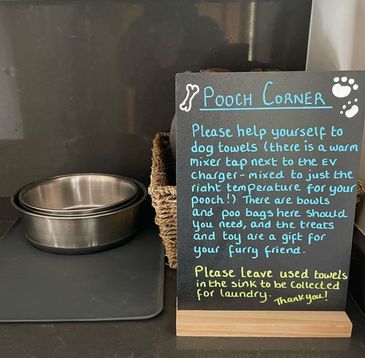 POOCH CORNER
Please help yourself to
dog towels (there is a warm
mixer tap next to the EV
charger - mixed to just the
right temperature for your
pooch!) There are bowls
and poo bags here should
you need, and the treats
and toy are a gift for
your furry friend.
Please leave used towels
in the sink to be collected
for laundry. Thank you!